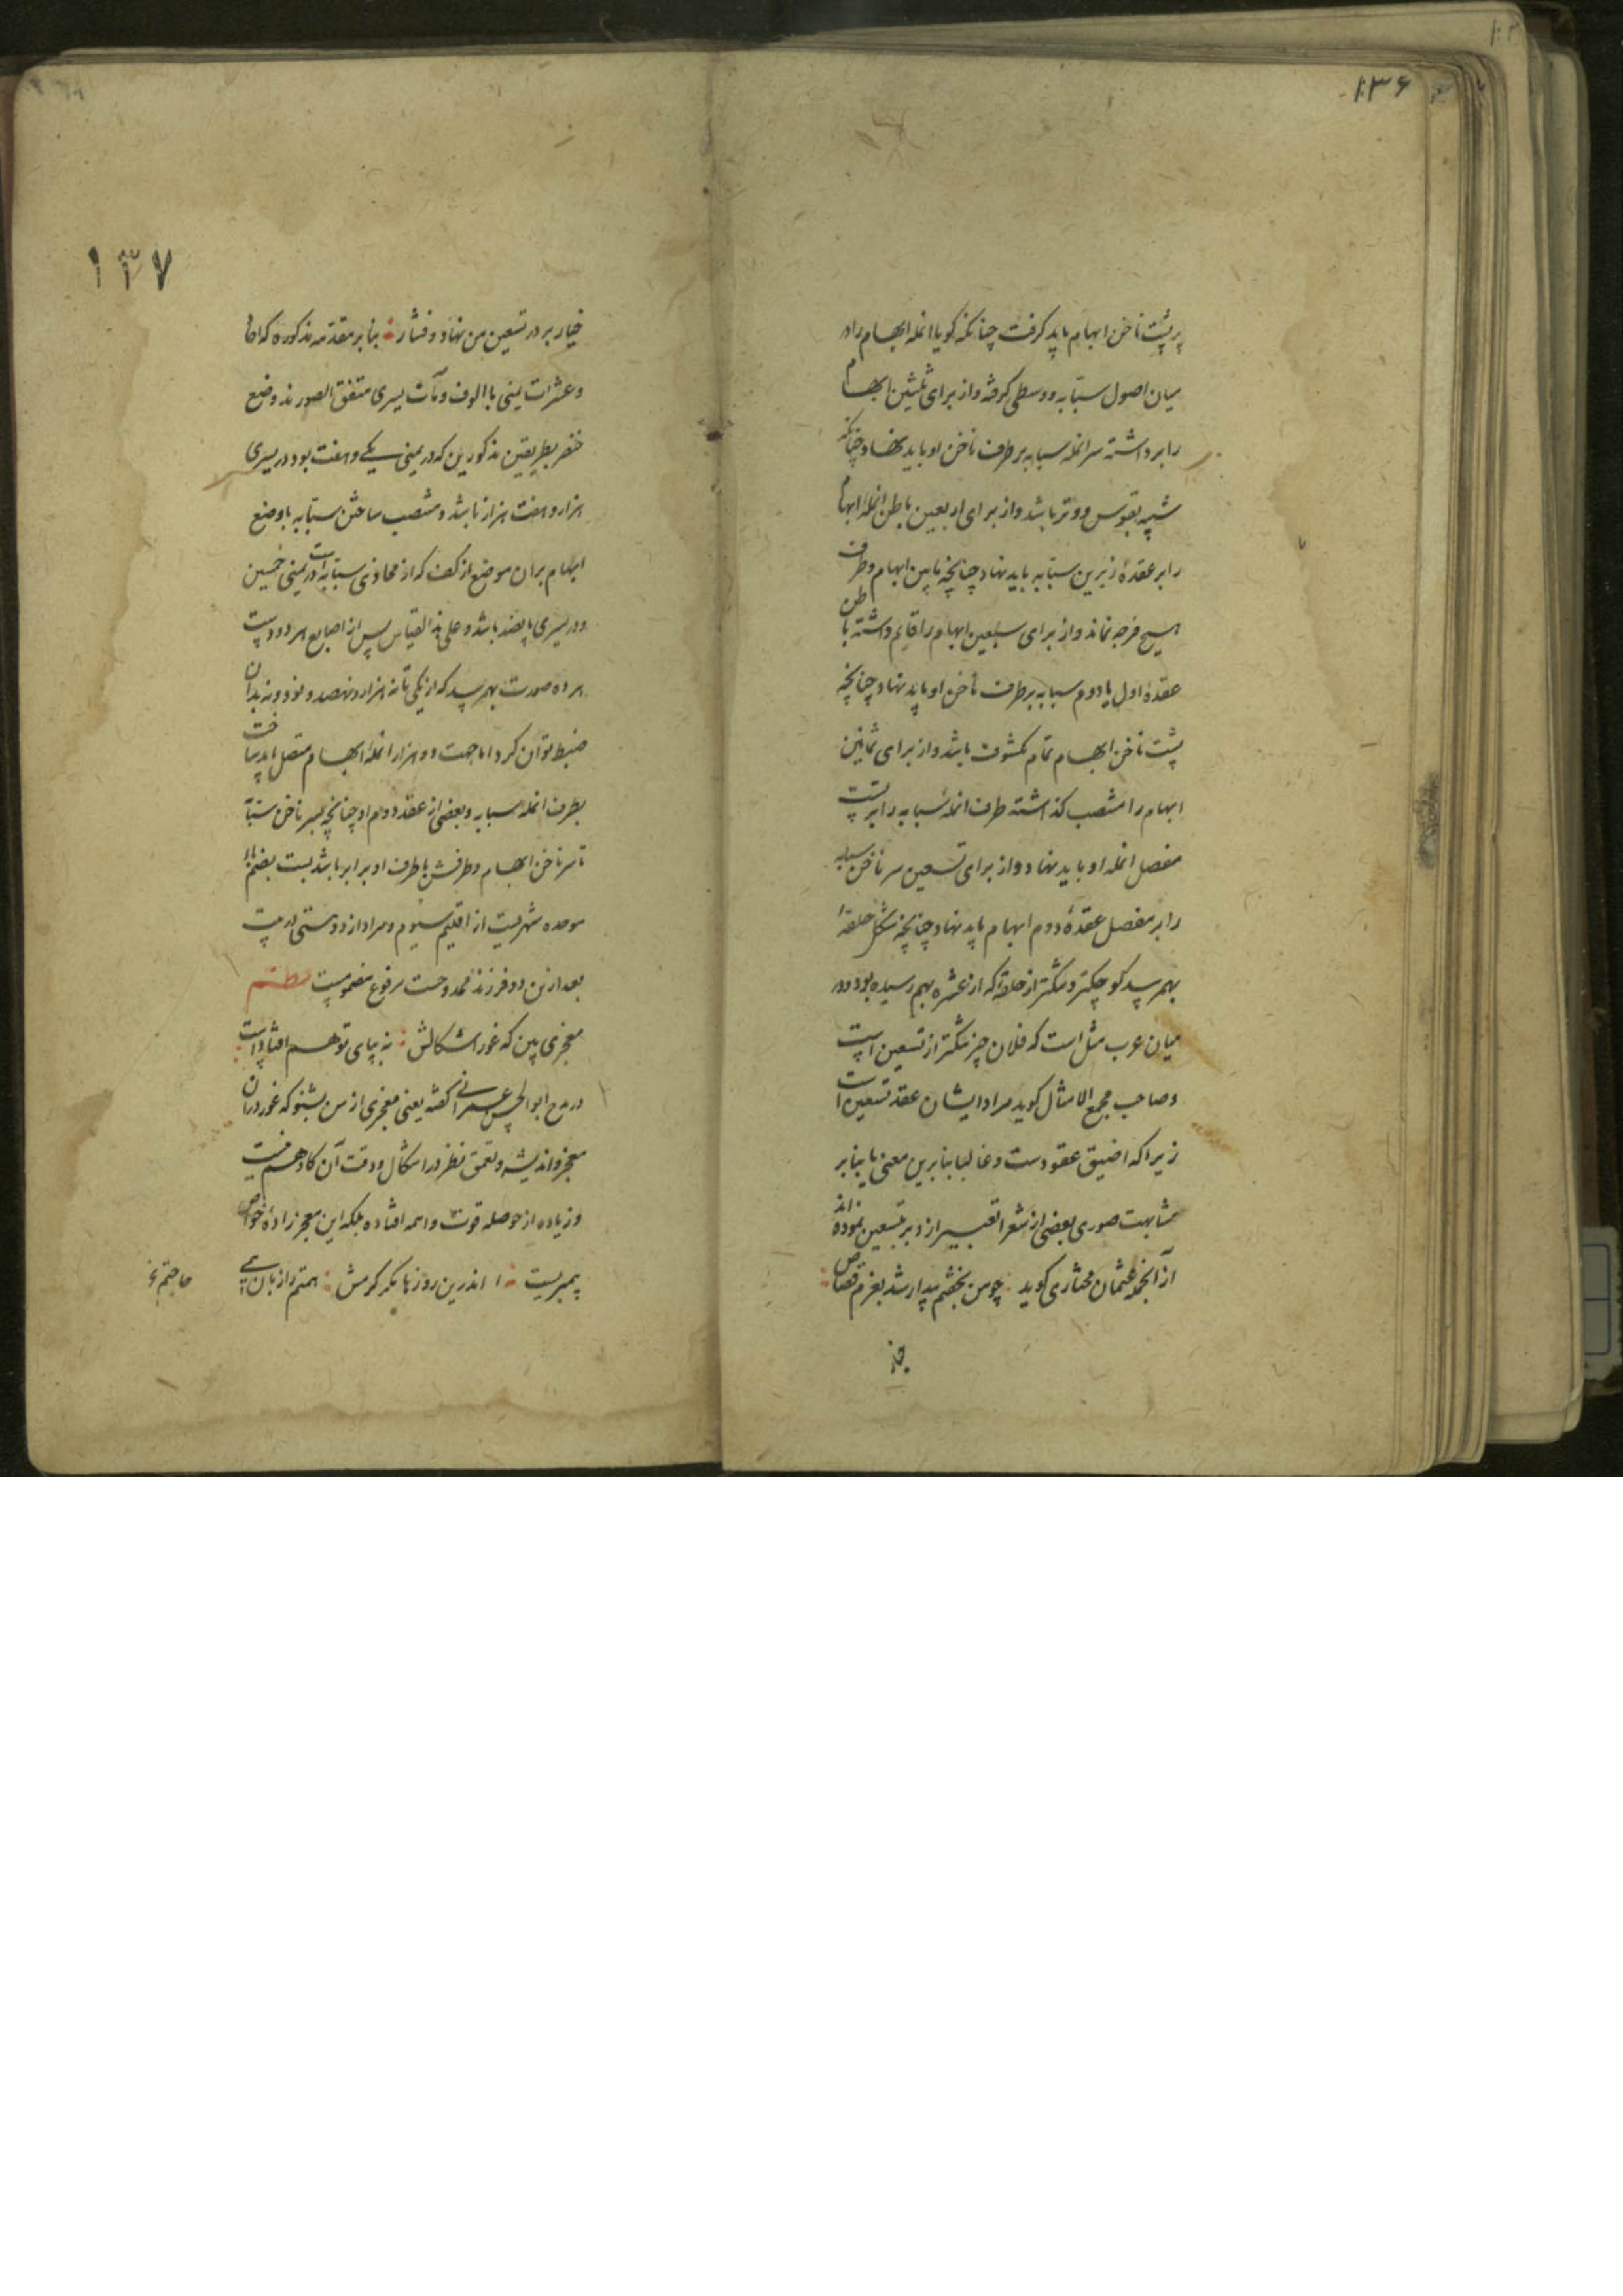 ۱۳۶
بر پشت ناخن ابهام باید گرفت چنانکه گویا انمله ابهام را در
میان اصول سبابه و وسطی گرفته و از برای ثلثین ابهام
را برداشته سر انمله سبابه بر طرف ناخن او باید نهاد چنانکه
شبیه بقوس و وتر باشد و از برای اربعین باطن انمله ابهام
را بر عقدهٔ زیرین سبابه باید نهاد چنانچه مابین ابهام و طرف
هیچ فرجه نماند و از برای سبعین ابهام را قایم داشته باطن
عقدهٔ اول یا دوم سبابه بر طرف ناخن او باید نهاد چنانچه
پشت ناخن ابهام تمام مکشوف باشد و از برای ثمانین
ابهام را منتصب گذاشته طرف انملهٔ سبابه را بر پشت
مفصل انمله او باید نهاد و از برای تسعین سر ناخن سبابه
را بر مفصل عقدهٔ دوم ابهام باید نهاد چنانچه شکل حلقهٔ
بهم رسد کوچکتر و تنگتر از حلقه که از عشره بهم رسیده بود و در
میان عرب مثل است که فلان چیز تنگتر از تسعین است
و صاحب مجمع الامثال گوید مراد ایشان عقد تسعین است
زیرا که اضیق عقودست و غالبا بنابرین معنی یا بنابر
مشابهت صوری بعضی از شعرا تعبیر از دبر بتسعین نموده‌اند
از آنجمله عثمان مختاری گوید چو من بخشم بیدار شد بعزم قصاص
۱۳۷
خیار بر در تسعین من نهاد و فشار بنابر مقدمه مذکوره که احاد
و عشرات یمنی با الوف و مآت یسری متفق الصورند وضع
خنصر بطریقین مذکورین که در یمنی یکی و هفت بود در یسری
هزار و هفت هزار باشد و منتصب ساختن سبابه با وضع
ابهام بران موضع از کف که از محاذی سبابه است در یمنی خمسین
و در یسری پانصد باشد و علی هذا القیاس پس از اصابع هر دو دست
هر ده صورت بهم رسد که از یکی تا نه هزار و نهصد و نود و نه بدان
ضبط توان کرد اما جهت ده هزار انملهٔ ابهام متصل باید ساخت
بطرف انمله سبابه و بعضی از عقد دوم او چنانچه سر ناخن سبابه
تا سر ناخن ابهام و طرفش با طرف او برابر باشد بست بضم باء
موحده شهریست از اقلیم سیوم و مراد از دوستی له بیت
بعد ازین دو فرزند ممدوحت مرفوع مضمومیست نظم
معجزی بین که غور اشکالش نه بپای توهم افتادست
در مدح ابوالحسن عمرانی گفته یعنی معجزی از من بشنو که غور دران
معجز و اندیشه و تعمق نظر در اشکال و دقت آن کار وهم نیست
و زیاده از حوصله قوت واهمه افتاده بلکه این معجز زادهٔ خواص
پیمبریست اندرین روزها مگر کرمش همتم را زبان همی